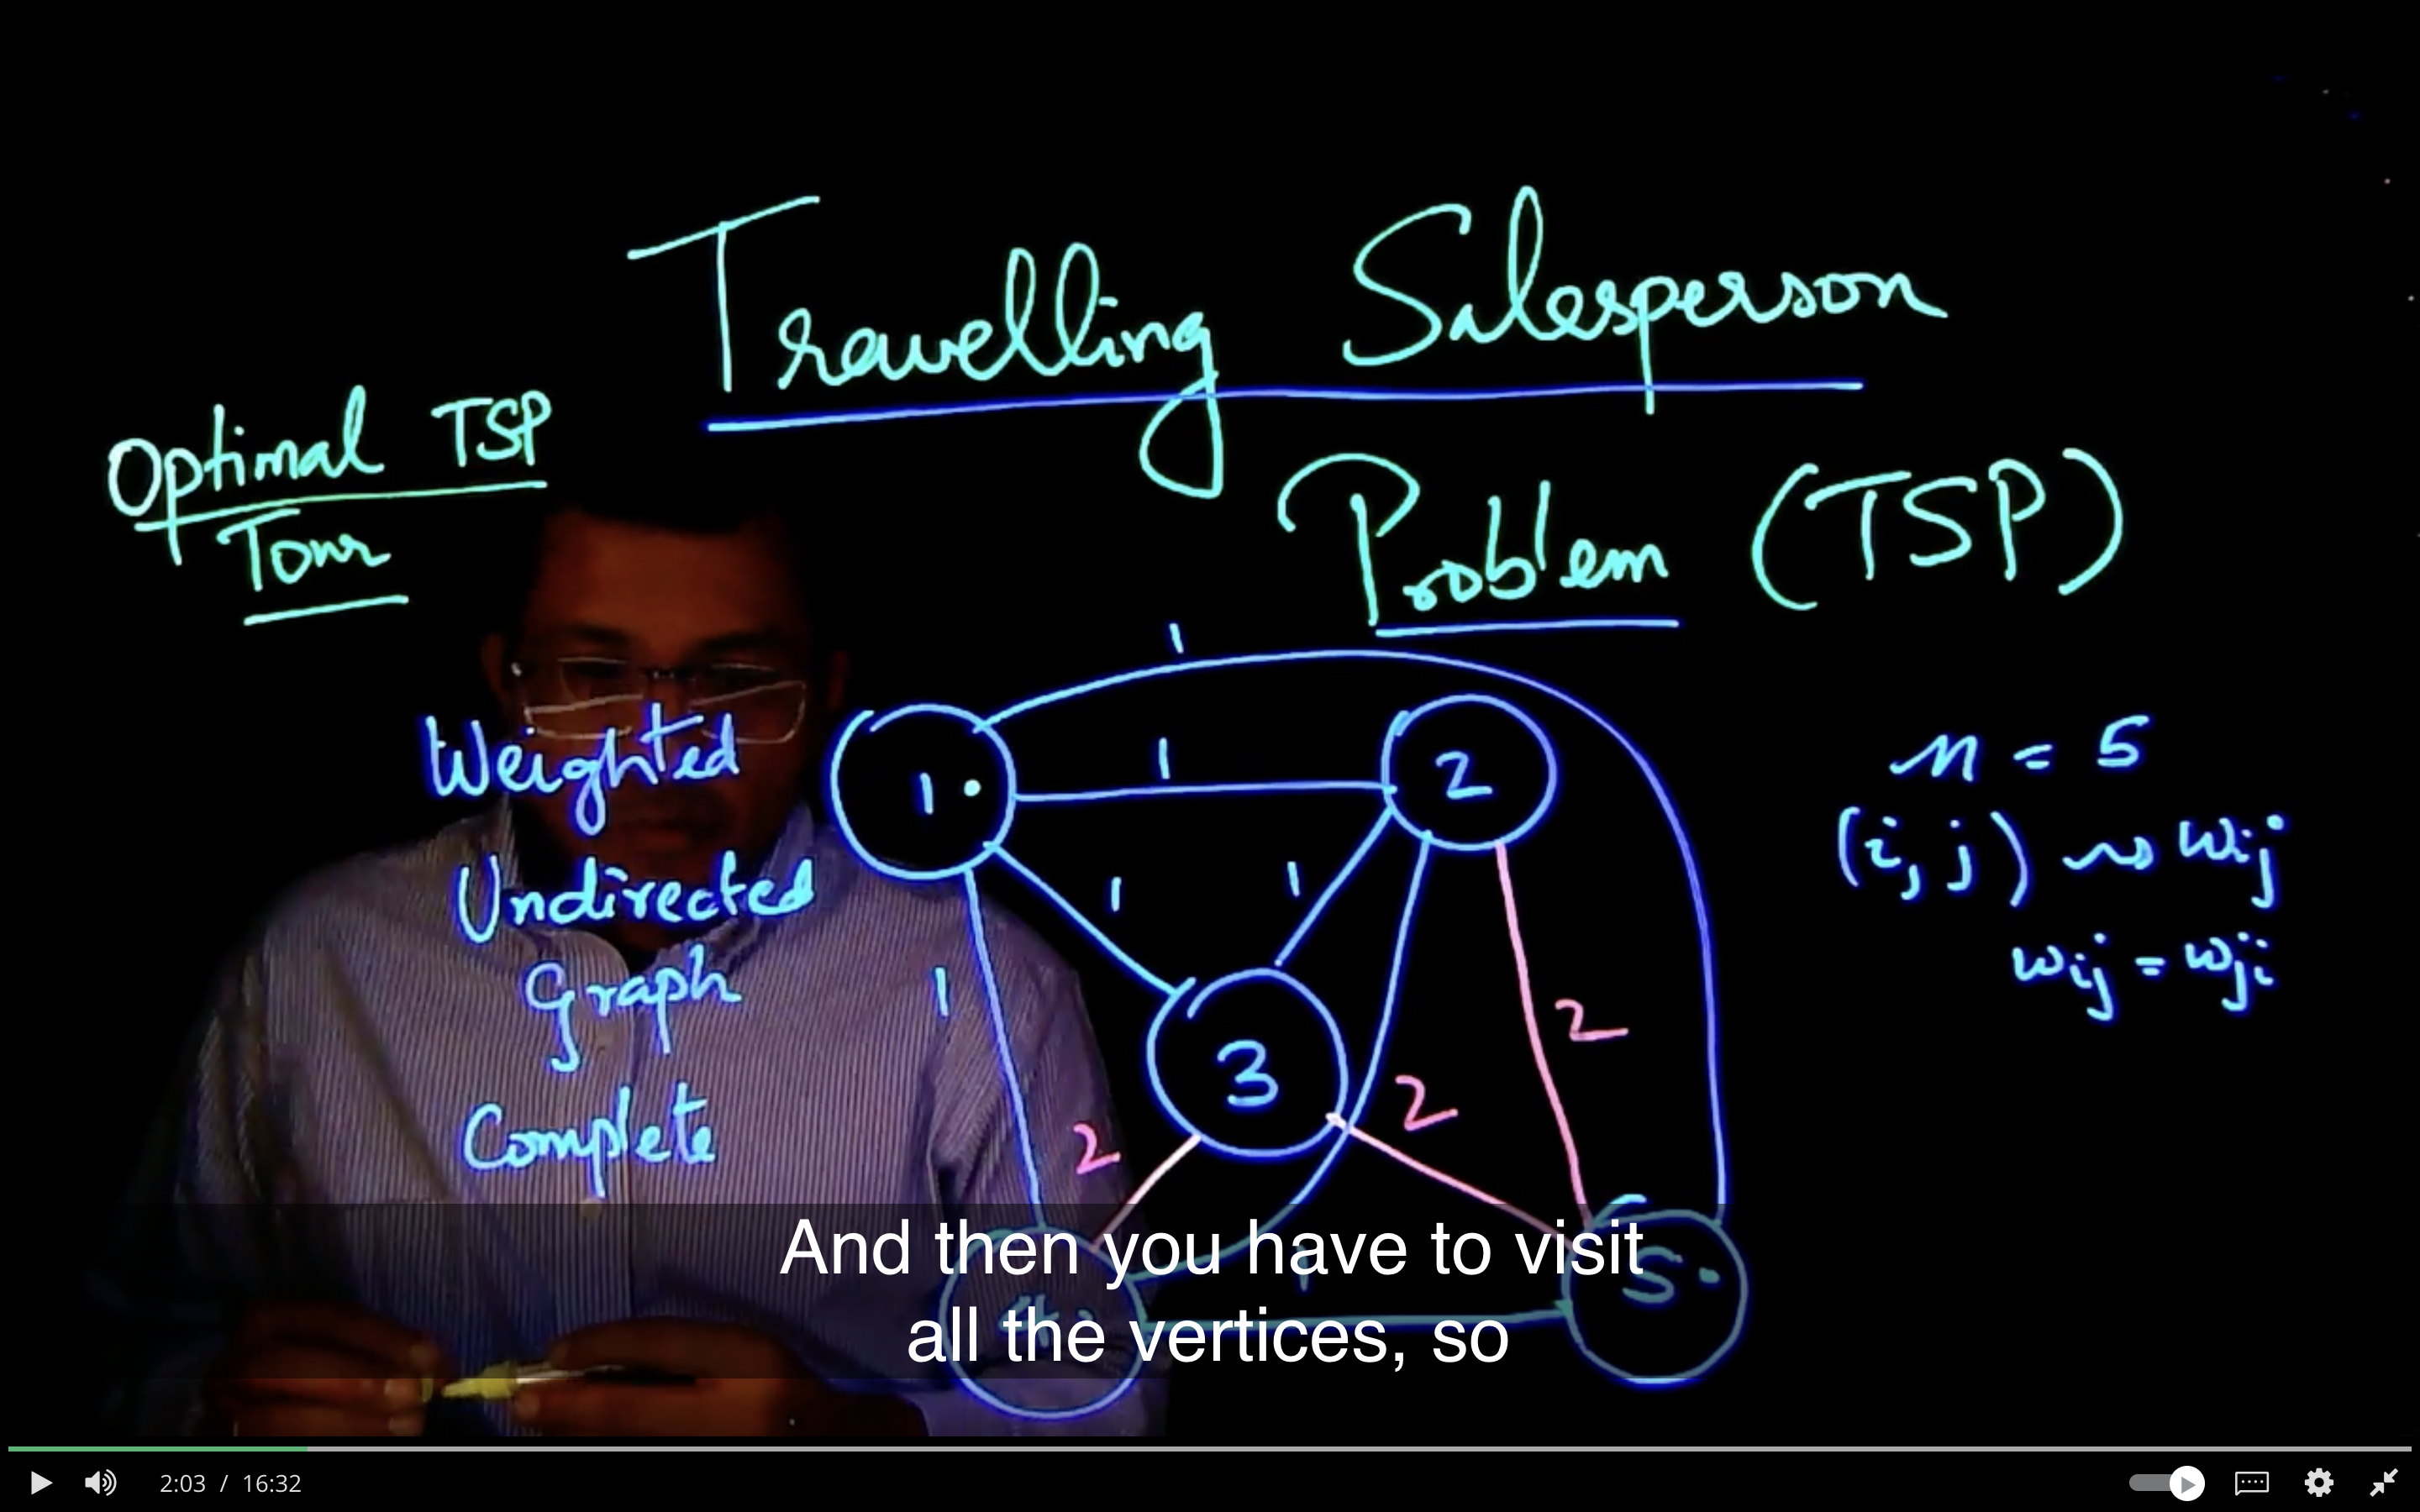 Travelling Salesperson
Problem (TSP)
Optimal TSP
Tour
Weighted
Undirected
Graph
Complete
1
1
1
1
1
2
2
2
1
1
2
3
4
5
n = 5
(i, j) ~> wij
wij = wji
And then you have to visit
all the vertices, so
2:03 / 16:32